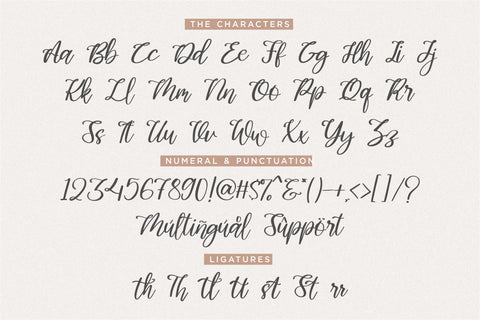 THE CHARACTERS
Aa Bb Cc Dd Ee Ff Gg Hh Ii Jj
Kk Ll Mm Nn Oo Pp Qq Rr
Ss Tt Uu Vv Ww Xx Yy Zz
NUMERAL & PUNCTUATION
1234567890!@#$%^&*()-+,<>[]/?
Múltiñguål Sûppört
LIGATURES
th Th tl tt st St rr